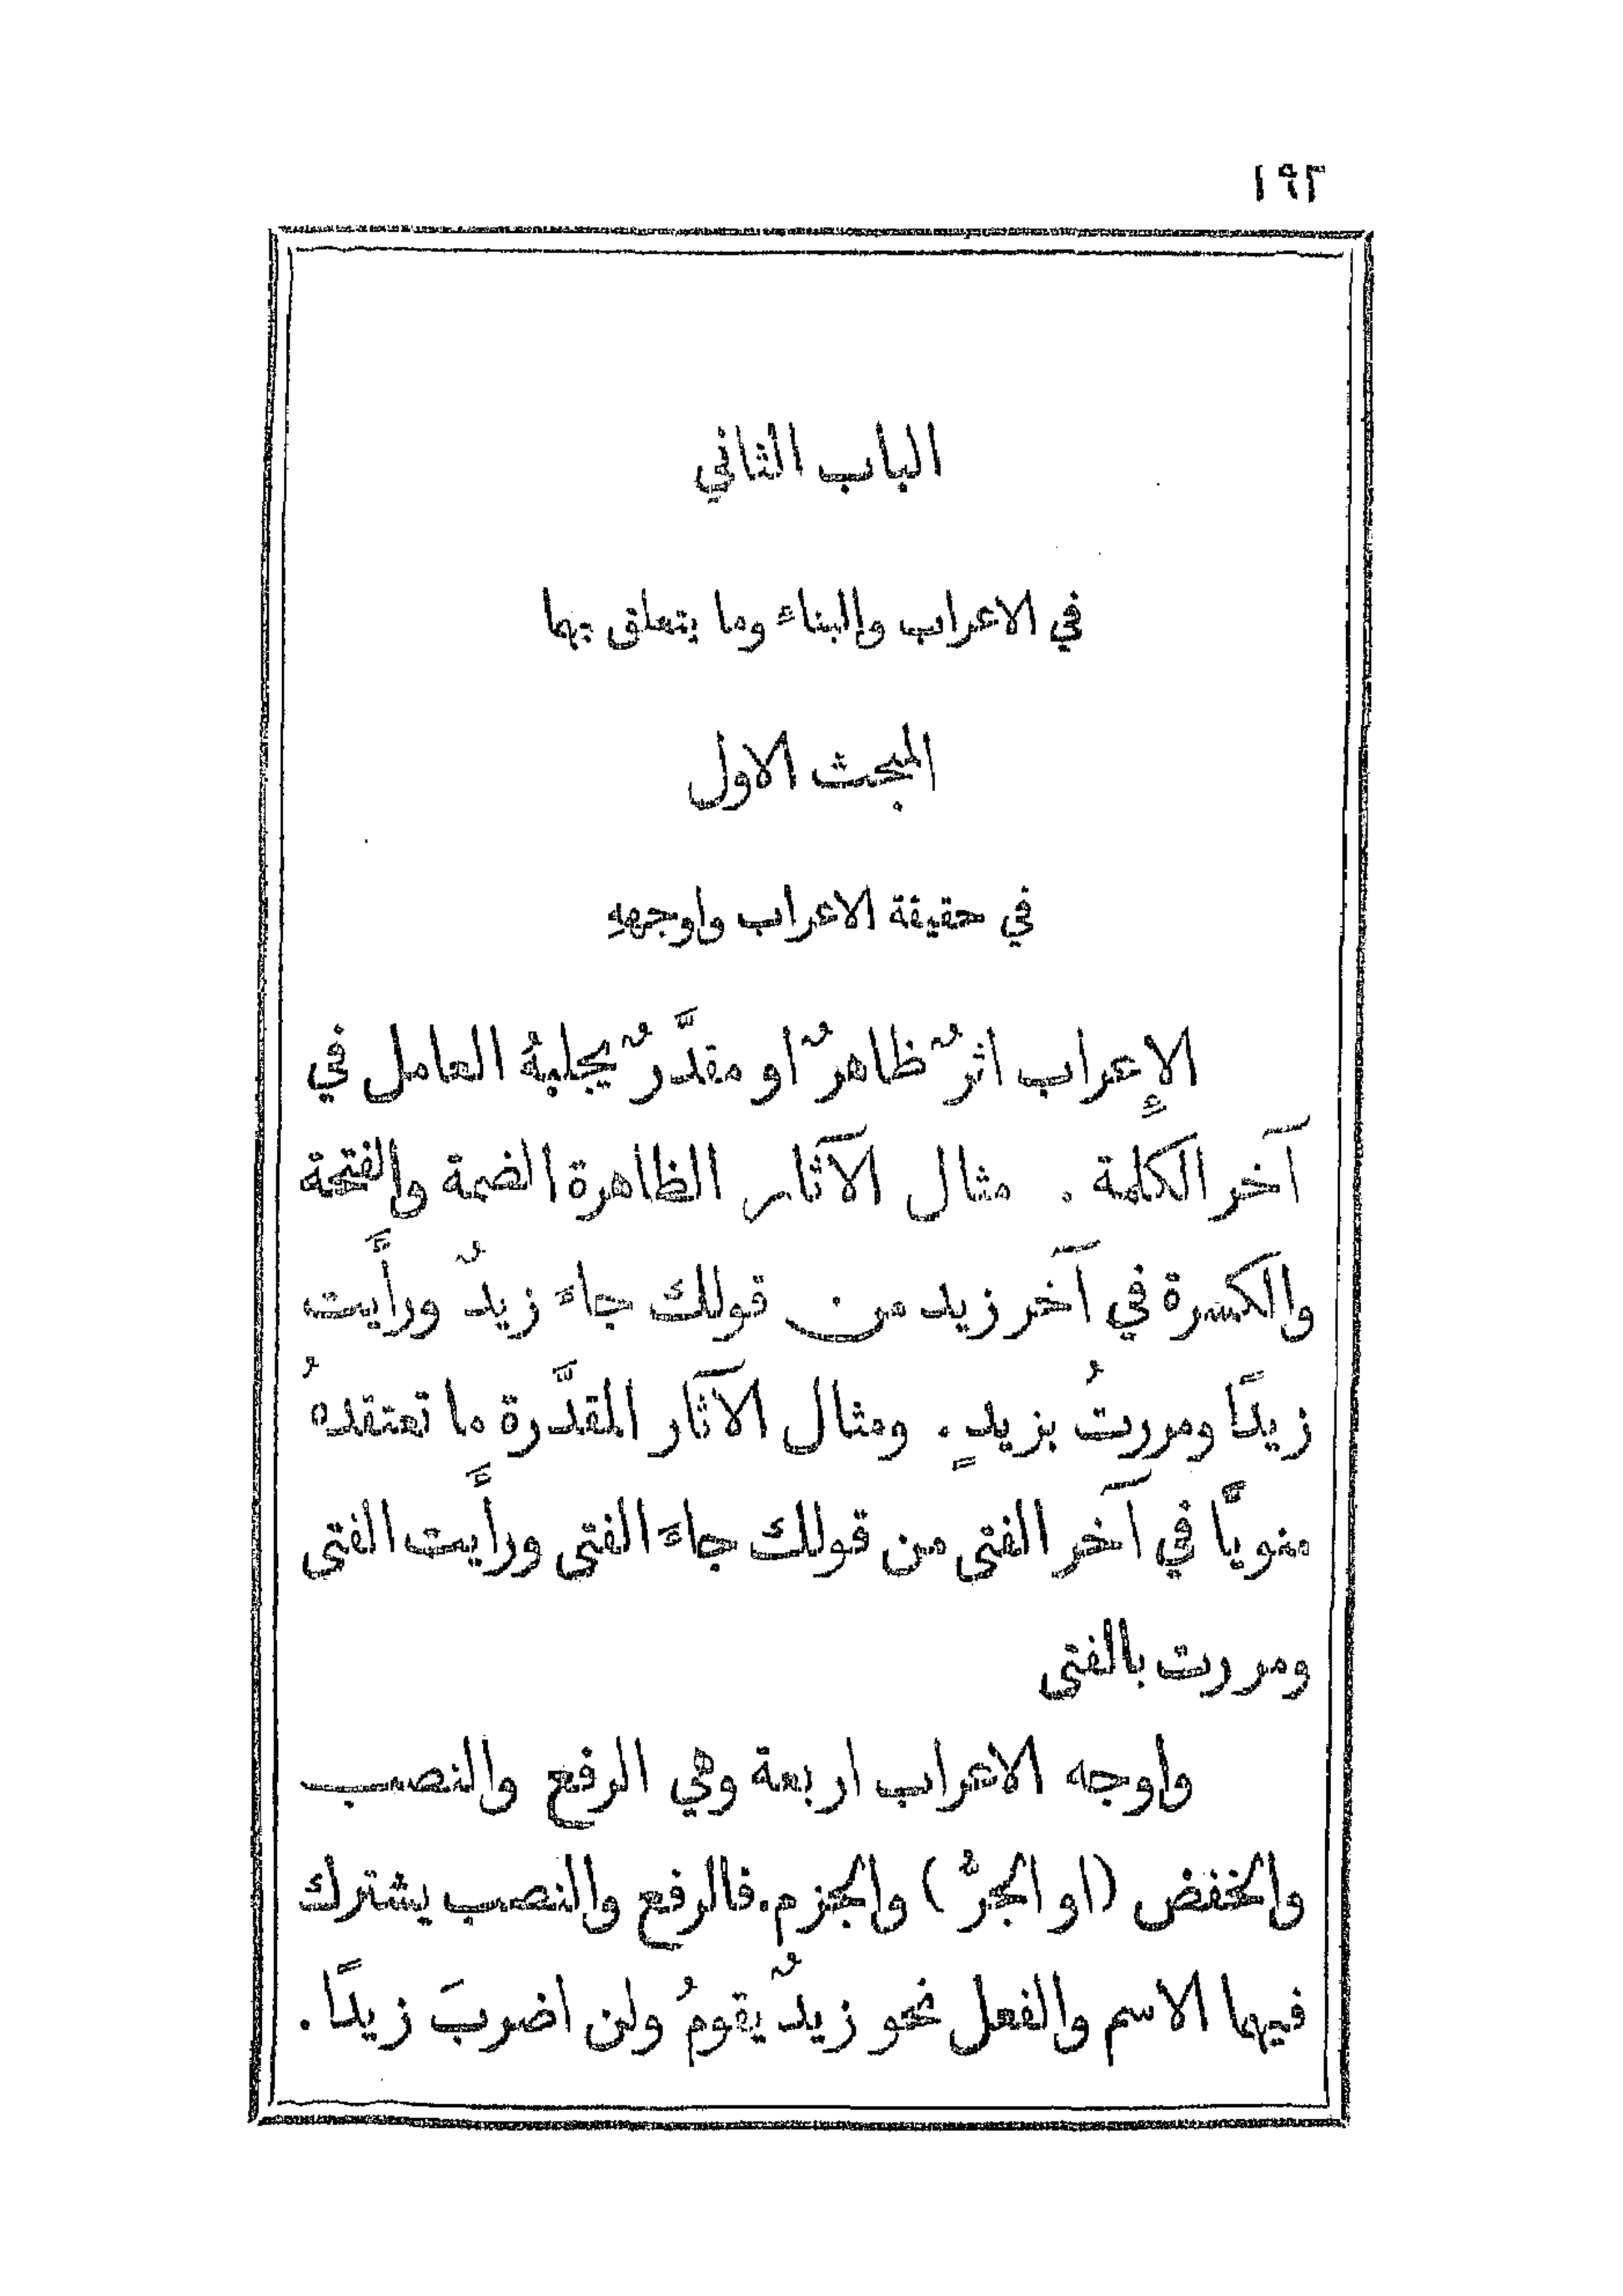 ١٩٢
الباب الثاني
في الاعراب والبناء وما يتعلق بهما
المبحث الاول
في حقيقة الاعراب واوجههِ
الإعراب اثرٌ ظاهرٌ او مقدَّرٌ يجلبهُ العامل في
آخر الكلمة . مثال الآثار الظاهرة الضمة والفتحة
والكسرة في آخر زيد من قولك جاءَ زيدٌ ورأَيت
زيدًا ومررتُ بزيدٍ . ومثال الآثار المقدَّرة ما تعتقدهُ
منويًّا في آخر الفتى من قولك جاءَ الفتى ورأَيت الفتى
ومررت بالفتى
واوجه الاعراب اربعة وهي الرفع والنصب
والخفض (او الجرُّ) والجزم . فالرفع والنصب يشترك
فيهما الاسم والفعل نحو زيدٌ يقومُ ولن اضربَ زيدًا .